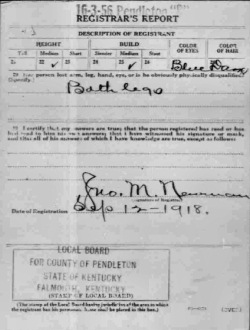 16-3-56 Pendleton "C"
REGISTRAR'S REPORT
DESCRIPTION OF REGISTRANT
HEIGHT BUILD COLOR OF EYES COLOR OF HAIR
Tall Medium Short Slender Medium Stout
21 22 ✓ 23 24 25 ✓ 26 27 Blue 28
29 Has person lost arm, leg, hand, eye, or is he obviously physically disqualified?
(Specify.)
Both legs
30 I certify that my answers are true; that the person registered has read or has
had read to him his own answers; that I have witnessed his signature or mark,
and that all of his answers of which I have knowledge are true, except as follows:
Jno. M. Newman
(Signature of Registrar)
Date of Registration Sep 12-1918.
LOCAL BOARD
FOR COUNTY OF PENDLETON
STATE OF KENTUCKY
FALMOUTH, KENTUCKY
(STAMP OF LOCAL BOARD)
(The stamp of the Local Board having jurisdiction of the area in which
the registrant has his permanent home shall be placed in this box.)
(OVER)